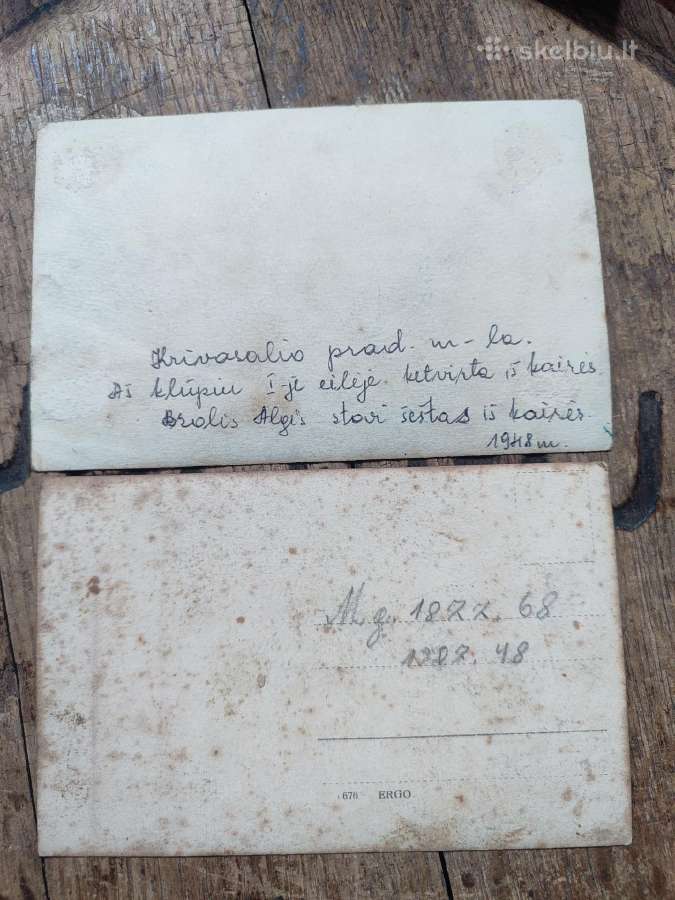 skelbiu.lt
Krivasalio prad. m-la.
Aš klūpiu I-je eilėje. ketvirta iš kairės.
Brolis Algis stovi šeštas iš kairės.
1948 m.
M g. 1822. 68
1382. 48
676 ERGO